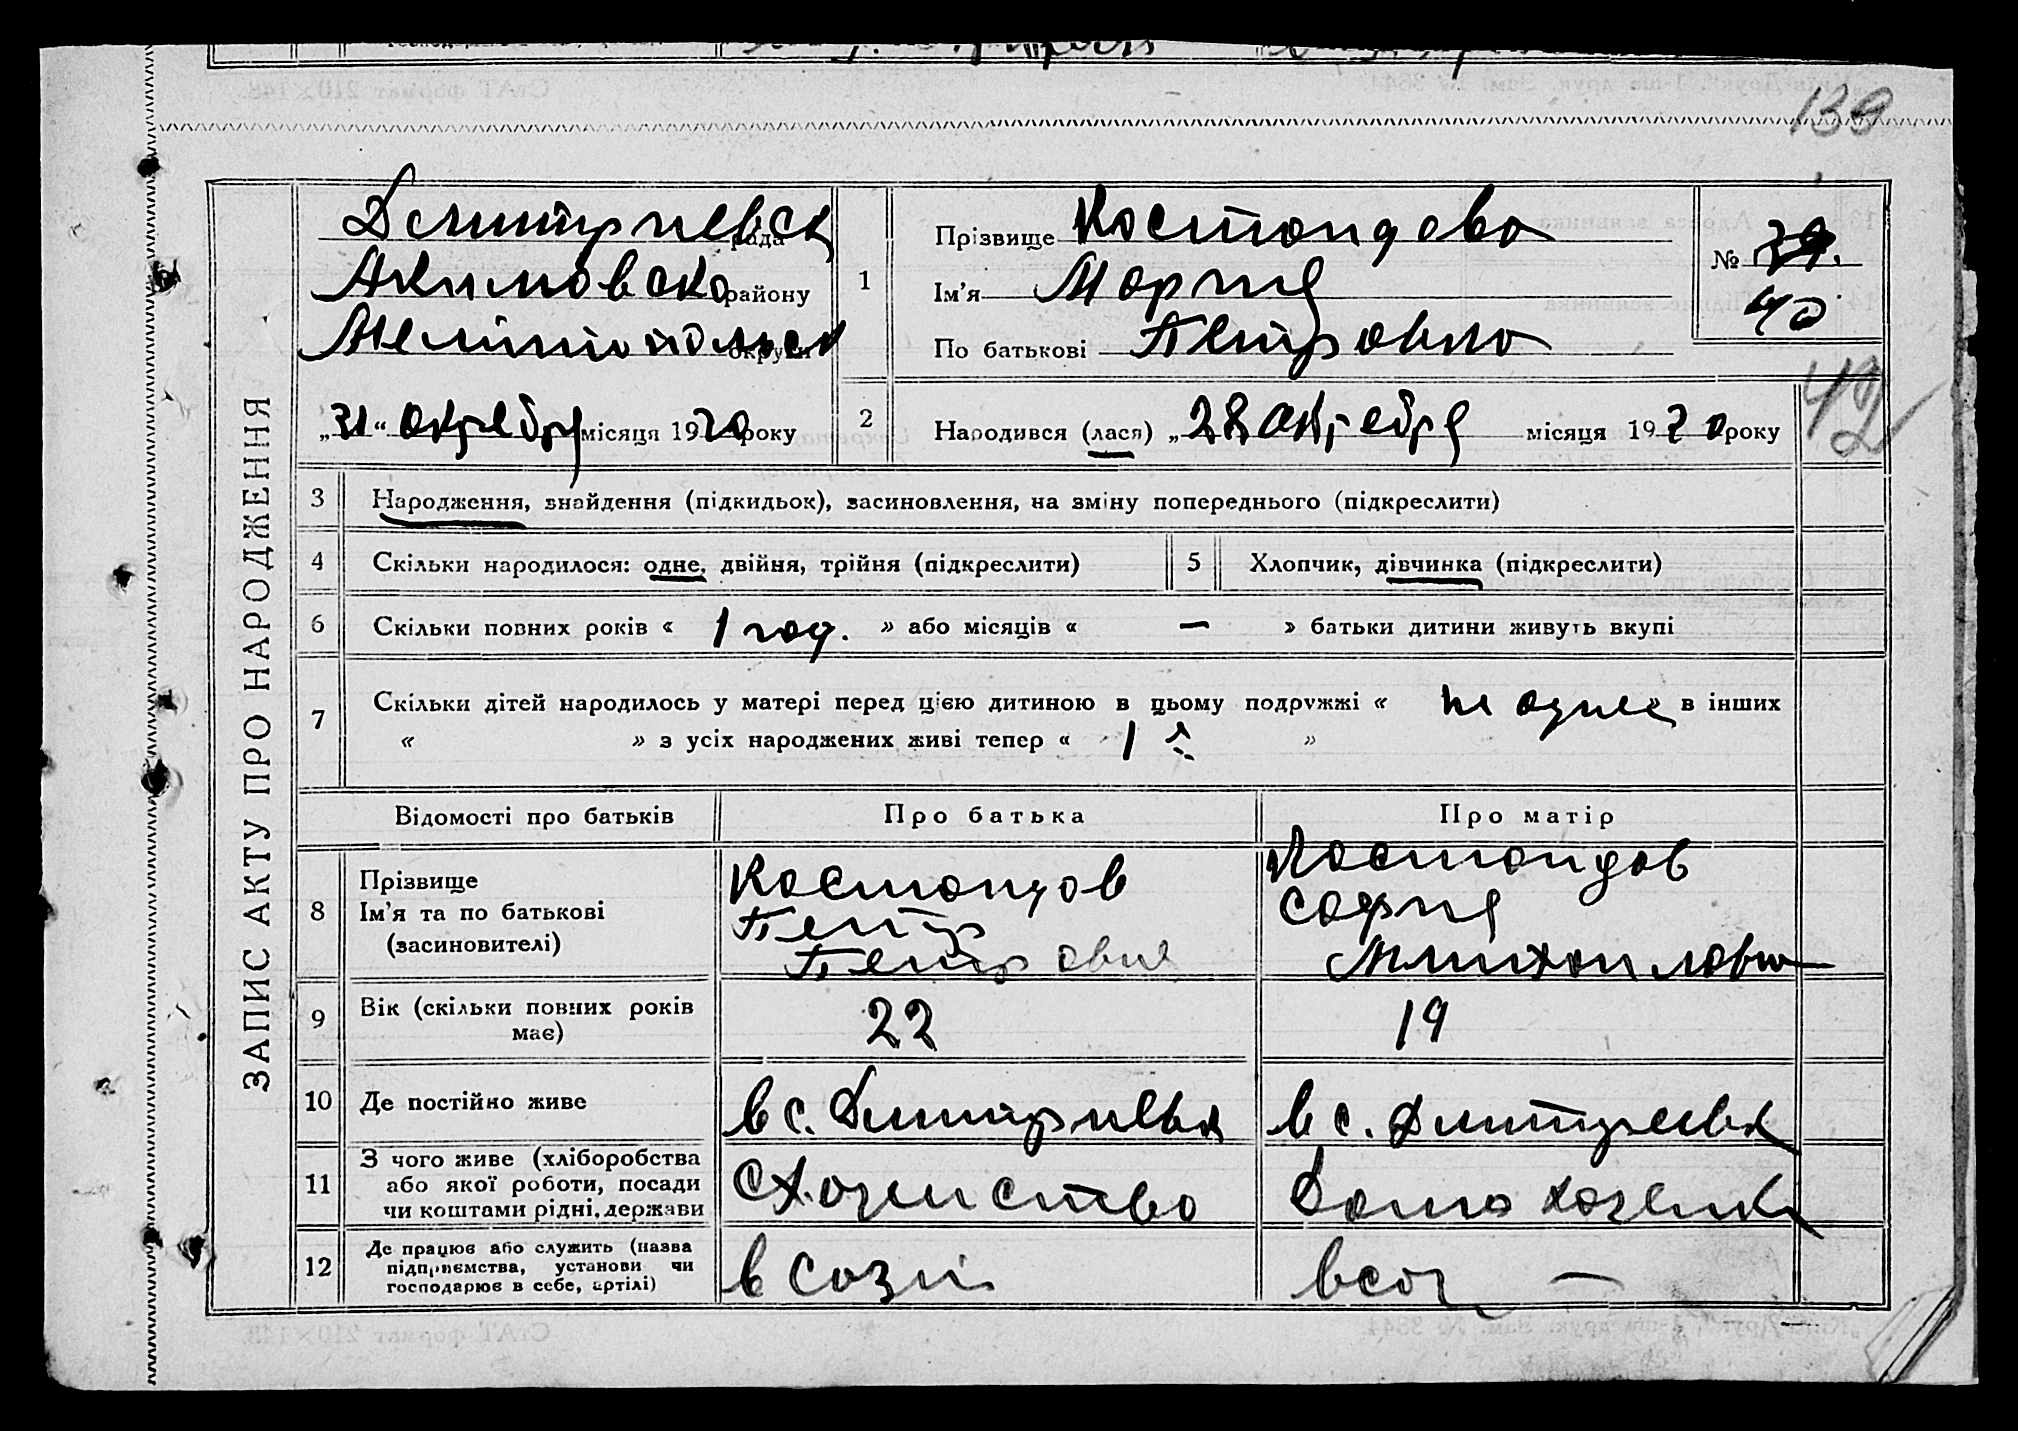 139
ЗАПИС АКТУ ПРО НАРОДЖЕННЯ
Дмитриевск рада
Акимовско району
Мелитопольск округи
„31“ октября місяця 1930 року
1
Прізвище Костоидова
Ім’я Мария
По батькові Петровна
№ 39.
40
42
2
Народився (лася) „28 октября місяця 1930 року
3 Народження, знайдення (підкидьок), засиновлення, на зміну попереднього (підкреслити)
4 Скільки народилося: одне, двійня, трійня (підкреслити) 5 Хлопчик, дівчинка (підкреслити)
6 Скільки повних років « 1 год. » або місяців « — » батьки дитини живуть вкупі
7 Скільки дітей народилось у матері перед цією дитиною в цьому подружжі « не одного » в інших
« » з усіх народжених живі тепер « 1 »
Відомості про батьків Про батька Про матір
8 Прізвище
Ім’я та по батькові
(засиновителі)
Костоидов
Петр
Петрович
Костоидов
София
Михайловна
9 Вік (скільки повних років має) 22 19
10 Де постійно живе в с. Дмитриевк в с. Дмитриевк
11 З чого живе (хліборобства
або якої роботи, посади
чи коштами рідні, держави
Дома хозяйка
12 Де працює або служить (назва
підприємства, установи чи
господарює в себе, артілі)
в созі
в соз —